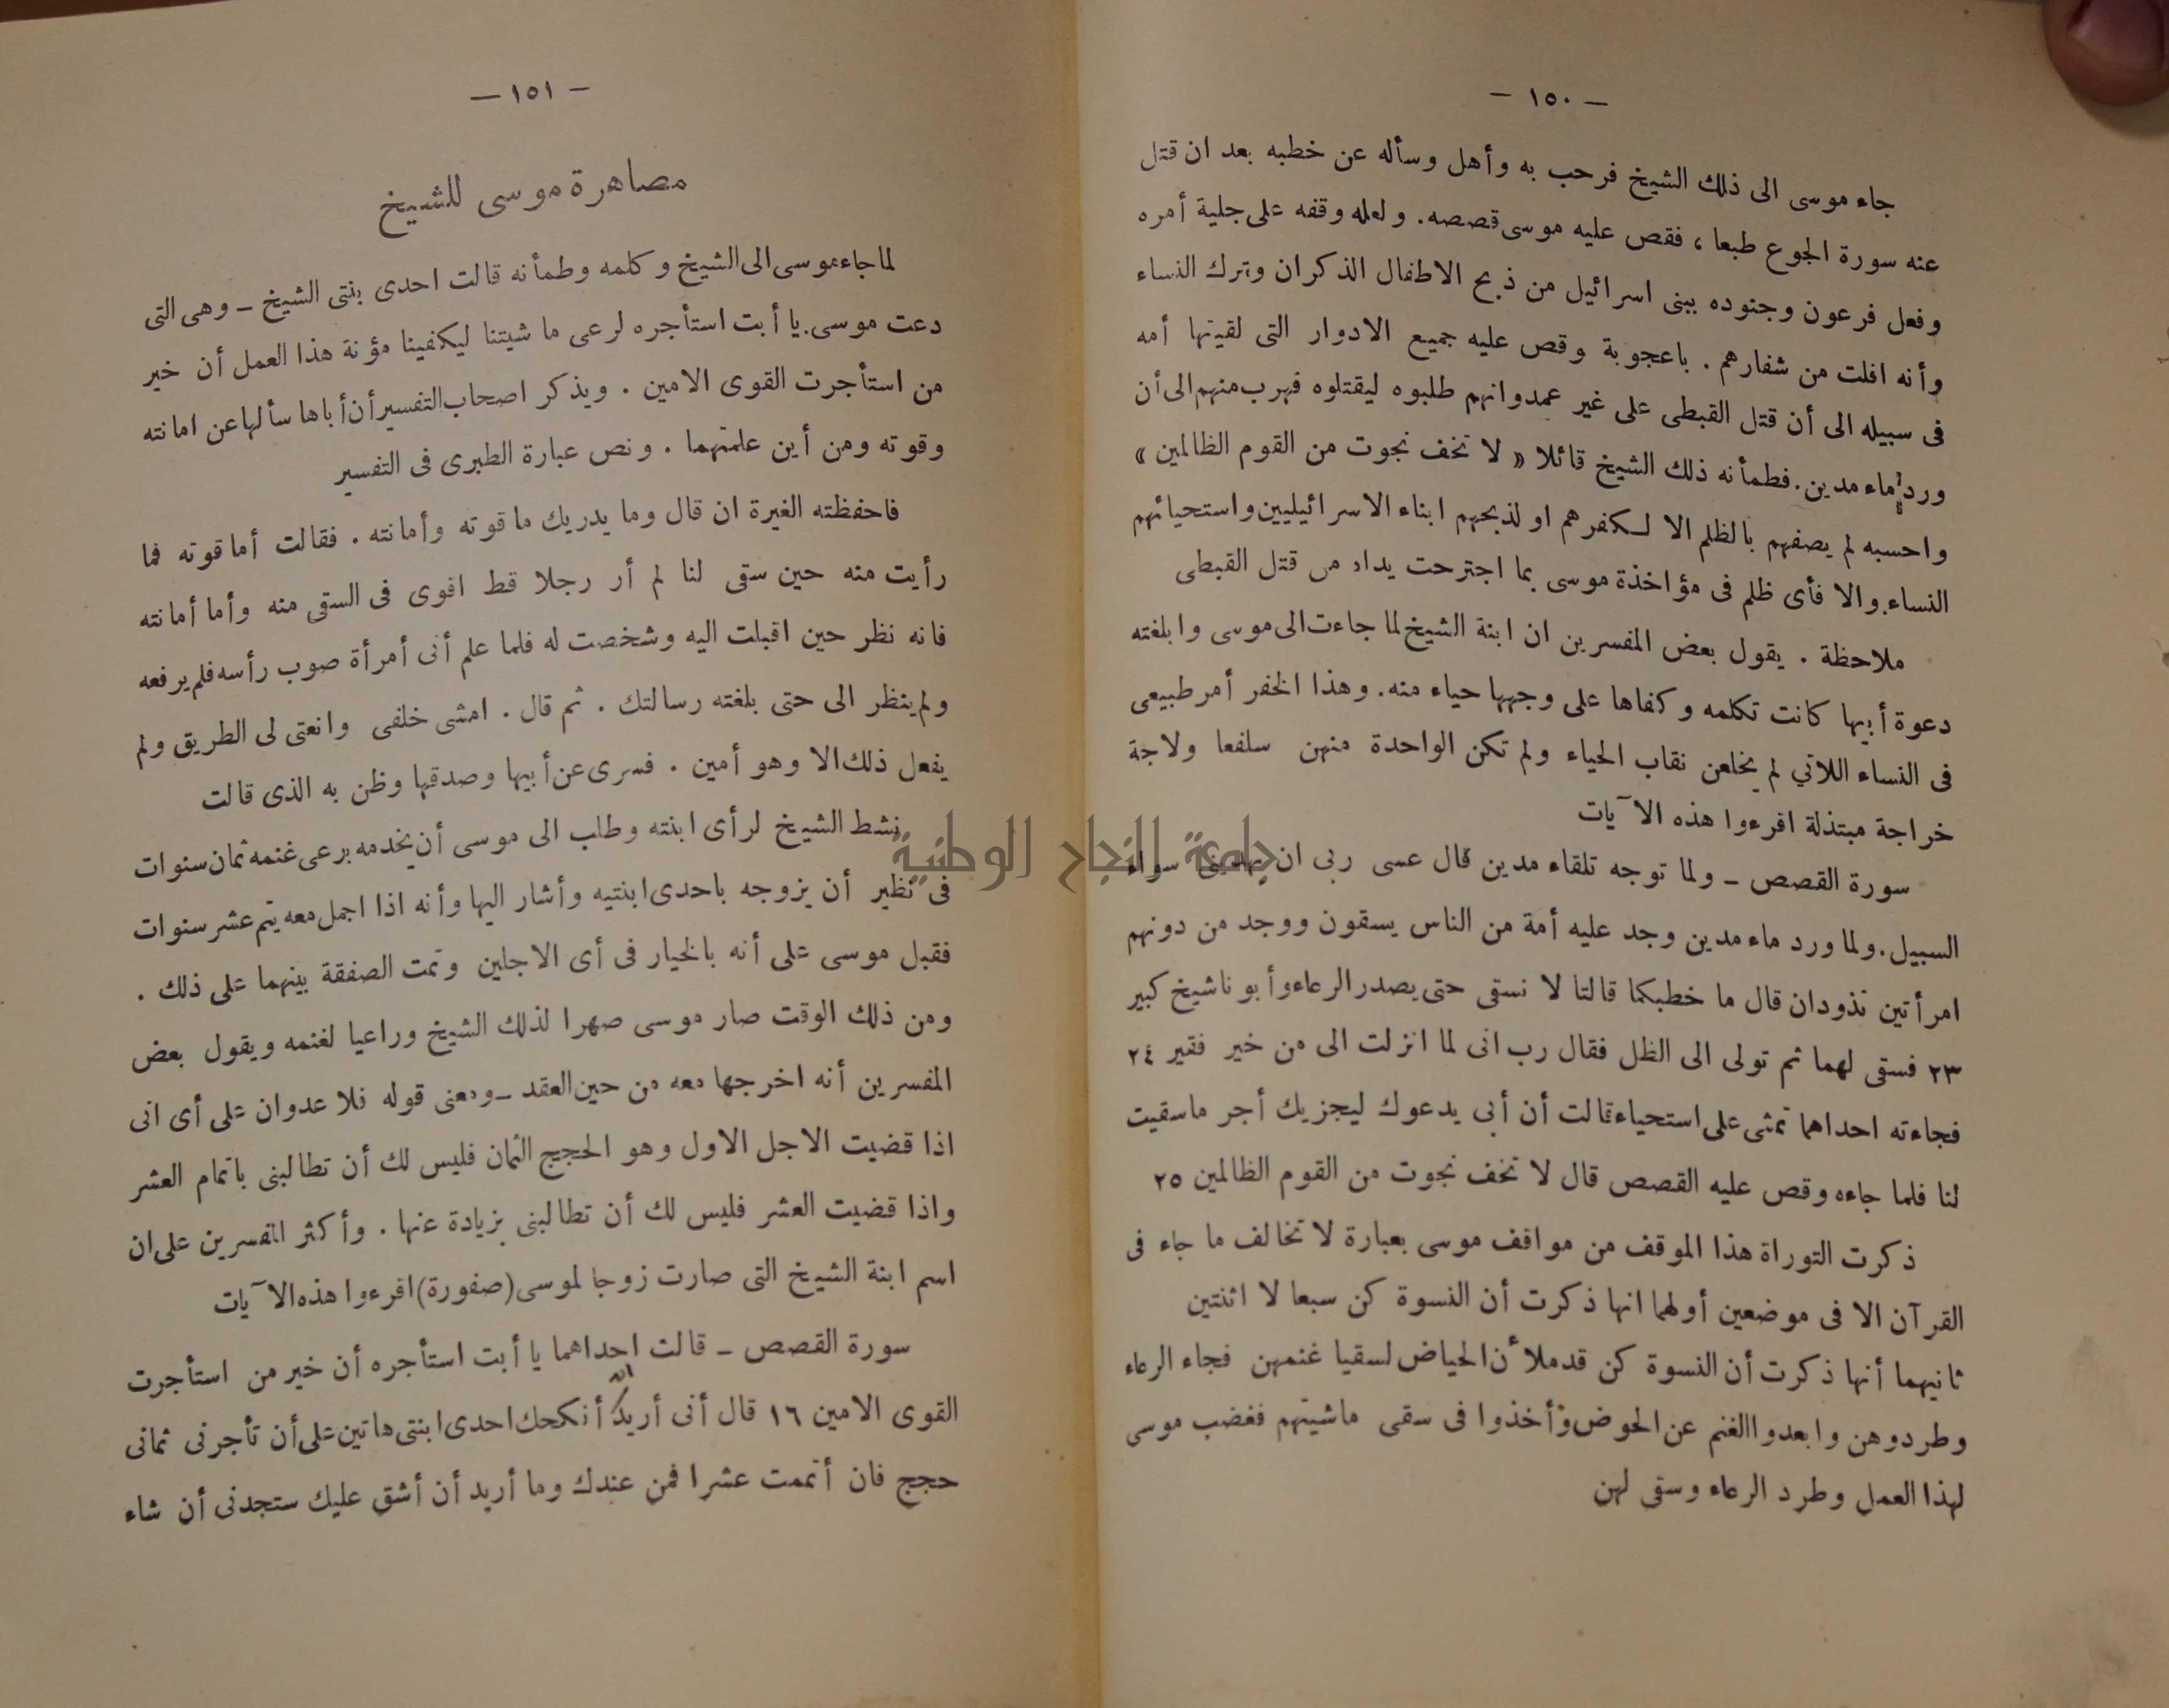 — ١٥٠ —
جاء موسى الى ذلك الشيخ فرحب به وأهل وسأله عن خطبه بعد ان قتل
عنه سورة الجوع طبعا ، فقص عليه موسى قصصه . ولعله وقفه على جلية أمره
وفعل فرعون وجنوده ببنى اسرائيل من ذبح الاطفال الذكران وترك النساء
وأنه افلت من شفارهم . باعجوبة وقص عليه جميع الادوار التى لقيتها أمه
فى سبيله الى أن قتل القبطى على غير عمد وانهم طلبوه ليقتلوه فهرب منهم الى أن
ورد ماء مدين . فطمأنه ذلك الشيخ قائلا « لا تخف نجوت من القوم الظالمين »
واحسبه لم يصفهم بالظلم الا لكفرهم او لذبحهم ابناء الاسرائيليين واستحيائهم
النساء . والا فأى ظلم فى مؤاخذة موسى بما اجترحت يداه من قتل القبطى
ملاحظة . يقول بعض المفسرين ان ابنة الشيخ لما جاءت الى موسى وابلغته
دعوة أبيها كانت تكلمه وكفاها على وجهها حياء منه . وهذا الخفر أمر طبيعى
فى النساء اللاتي لم يخلعن نقاب الحياء ولم تكن الواحدة منهن سلفعا ولاجة
خراجة مبتذلة اقرءوا هذه الآيات
سورة القصص ــ ولما توجه تلقاء مدين قال عسى ربى ان يهدينى سواء
السبيل . ولما ورد ماء مدين وجد عليه أمة من الناس يسقون ووجد من دونهم
امرأتين تذودان قال ما خطبكما قالتا لا نسقى حتى يصدر الرعاء وأبونا شيخ كبير
٢٣ فسقى لهما ثم تولى الى الظل فقال رب انى لما انزلت الى من خير فقير ٢٤
فجاءته احداهما تمشى على استحياء قالت أن أبى يدعوك ليجزيك أجر ما سقيت
لنا فلما جاءه وقص عليه القصص قال لا تخف نجوت من القوم الظالمين ٢٥
ذكرت التوراة هذا الموقف من مواقف موسى بعبارة لا تخالف ما جاء فى
القرآن الا فى موضعين أولهما انها ذكرت أن النسوة كن سبعا لا اثنتين
ثانيهما أنها ذكرت أن النسوة كن قد ملأن الحياض لسقيا غنمهن فجاء الرعاء
وطردوهن وابعدوا الغنم عن الحوض وأخذوا فى سقى ماشيتهم فغضب موسى
لهذا العمل وطرد الرعاء وسقى لهن
— ١٥١ —
مصاهرة موسى للشيخ
لما جاء موسى الى الشيخ وكلمه وطمأنه قالت احدى بنتى الشيخ ــ وهى التى
دعت موسى . يا أبت استأجره لرعى ما شيتنا ليكفينا مؤنة هذا العمل أن خير
من استأجرت القوى الامين . ويذكر اصحاب التفسير أن أباها سألها عن امانته
وقوته ومن أين علمتهما . ونص عبارة الطبرى فى التفسير
فاحفظته الغيرة ان قال وما يدريك ما قوته وأمانته . فقالت أما قوته فما
رأيت منه حين سقى لنا لم أر رجلا قط اقوى فى السقى منه وأما أمانته
فانه نظر حين اقبلت اليه وشخصت له فلما علم أنى أمرأة صوب رأسه فلم يرفعه
ولم ينظر الى حتى بلغته رسالتك . ثم قال . امشى خلفى وانعتى لى الطريق ولم
يفعل ذلك الا وهو أمين . فسرى عن أبيها وصدقها وظن به الذى قالت
نشط الشيخ لرأى ابنته وطلب الى موسى أن يخدمه برعى غنمه ثمان سنوات
فى نظير أن يزوجه باحدى ابنتيه وأشار اليها وأنه اذا اجمل معه يتم عشر سنوات
فقبل موسى على أنه بالخيار فى أى الاجلين وتمت الصفقة بينهما على ذلك .
ومن ذلك الوقت صار موسى صهرا لذلك الشيخ وراعيا لغنمه ويقول بعض
المفسرين أنه اخرجها معه من حين العقد ــ ومعنى قوله فلا عدوان على أى انى
اذا قضيت الاجل الاول وهو الحجج الثمان فليس لك أن تطالبنى باتمام العشر
واذا قضيت العشر فليس لك أن تطالبنى بزيادة عنها . وأكثر المفسرين على ان
اسم ابنة الشيخ التى صارت زوجا لموسى (صفورة) اقرءوا هذه الآيات
سورة القصص ــ قالت احداهما يا أبت استأجره أن خير من استأجرت
القوى الامين ١٦ قال أنى أريد أن أنكحك احدى ابنتى هاتين على أن تأجرنى ثمانى
حجج فان أتممت عشرا فمن عندك وما أريد أن أشق عليك ستجدنى أن شاء
جامعة النجاح الوطنية